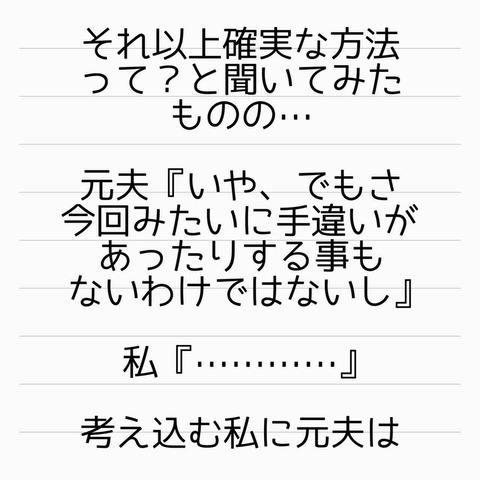 それ以上確実な方法
って？と聞いてみた
ものの…
元夫『いや、でもさ
今回みたいに手違いが
あったりする事も
ないわけではないし』
私『…………』
考え込む私に元夫は